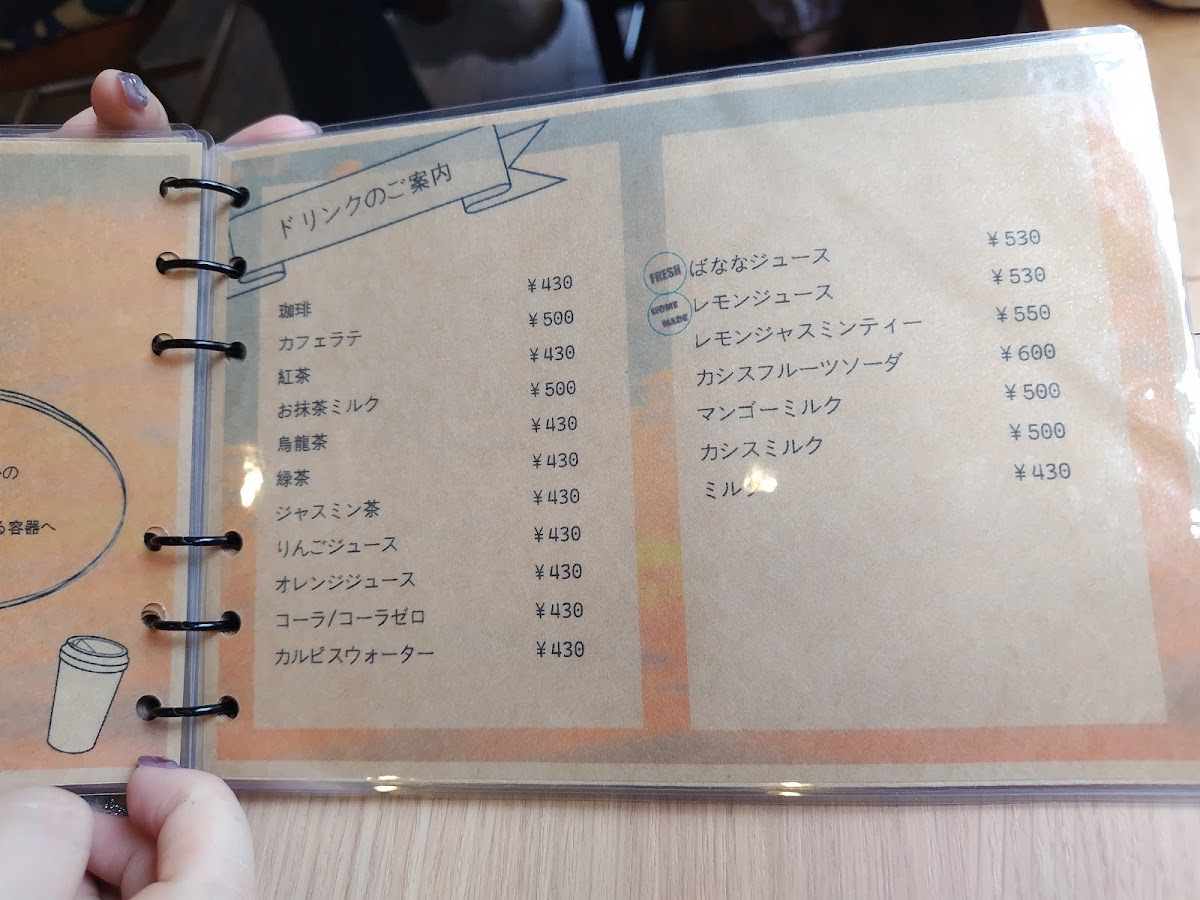 の
る容器へ
ドリンクのご案内
珈琲 ¥430
カフェラテ ¥500
紅茶 ¥430
お抹茶ミルク ¥500
烏龍茶 ¥430
緑茶 ¥430
ジャスミン茶 ¥430
りんごジュース ¥430
オレンジジュース ¥430
コーラ/コーラゼロ ¥430
カルピスウォーター ¥430
FRESH ばななジュース ¥530
HOME MADE レモンジュース ¥530
レモンジャスミンティー ¥550
カシスフルーツソーダ ¥600
マンゴーミルク ¥500
カシスミルク ¥500
ミルク ¥430